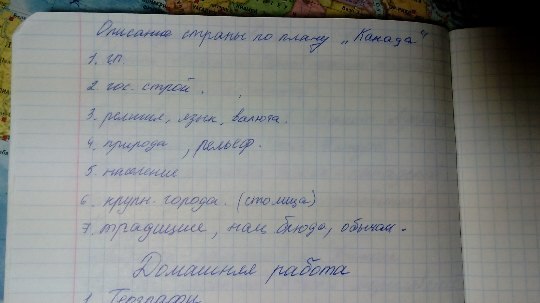 Описание страны по плану „Канада"
1. гп.
2. гос. строй.
3. религия, язык, валюта.
4. природа, рельеф.
5. население
6. крупн. города. (столица)
7. традиции, нац блюда, обычаи.
Домашняя работа
1. Географи